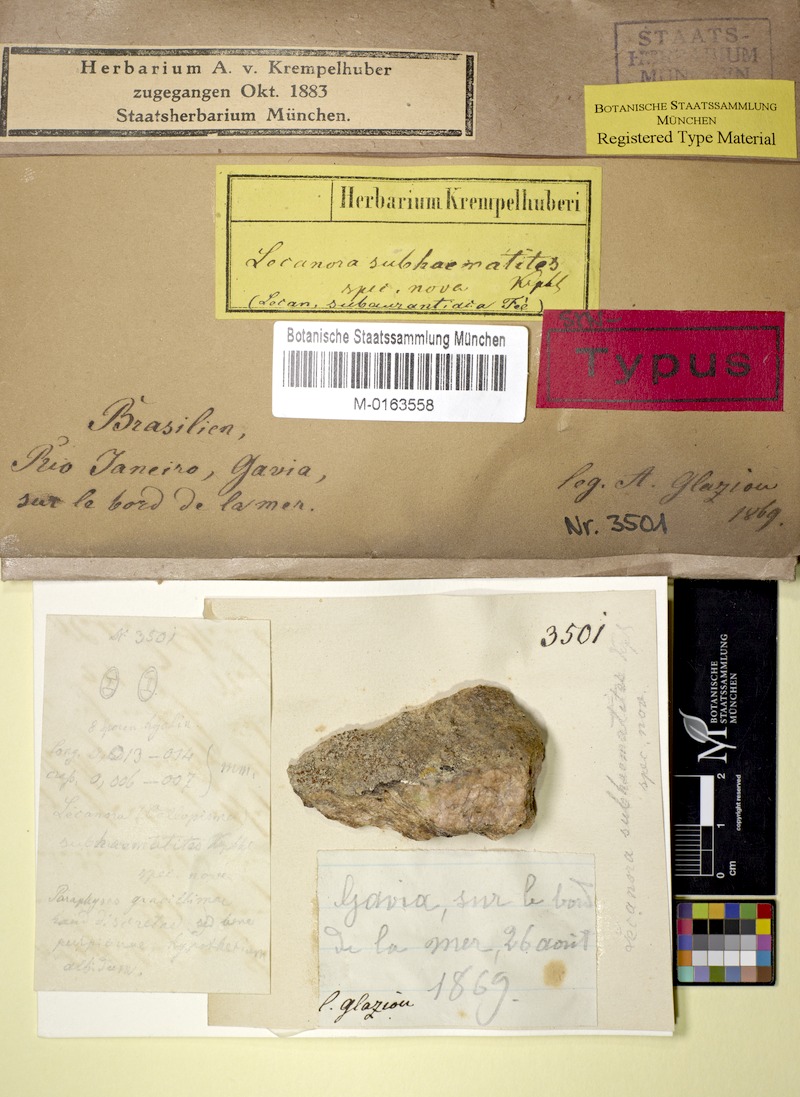 Herbarium A. v. Krempelhuber
zugegangen Okt. 1883
Staatsherbarium München.
STAATS-
HERBARIUM
MÜNCHEN
BOTANISCHE STAATSSAMMLUNG
MÜNCHEN
Registered Type Material
Herbarium Krempelhuberi
Lecanora subhaematites
spec. nova Kphb
(Lecan. subaurantiaca Fée)
Botanische Staatssammlung München
M-0163558
Typus
Brasilien,
Rio Janeiro, Gavia,
sur le bord de la mer.
leg. A. Glaziou
1869.
Nr. 3501
3501
N 3501
long. 0,013-014
0,006-007
mm.
Lecanora
subhaematites Kphb
spec. nova
Paraphyses gracillimae
haud discretae, sed bene
Hypothecium
albidum.
Lecanora subhaematites Kphb
spec. nov.
Gavia, sur le bord
de la mer, 26 août
1869.
l. Glaziou
BOTANISCHE
STAATSSAMMLUNG
MÜNCHEN
0 1 2
cm
copyright reserved